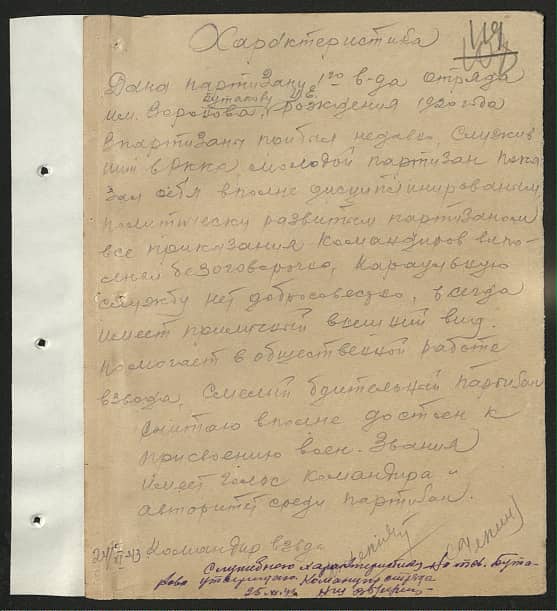 Характеристика
Дана партизану 1го в-да отряда
Бутакову И.Е.
им. Егорова, рождения 1920 года
В партизаны прибыл недавно, служив
ший в РККА молодой партизан пока
зал себя вполне дисциплинированым
политически развитым партизаном
все приказания командиров выпо-
лняет безоговорочно, караульную
службу нет добросовестно, всегда
имеет приличный внешний вид.
помогает в общественной работе
взвода. Смелый бдительный партизан
Считаю вполне достоен к
присвоению воен. Звания
имеет голос командира и
авторитет среди партизан.
Командир взвода
Служебную характеристику на тов. Бута-
кова утверждаю. Командир отряда